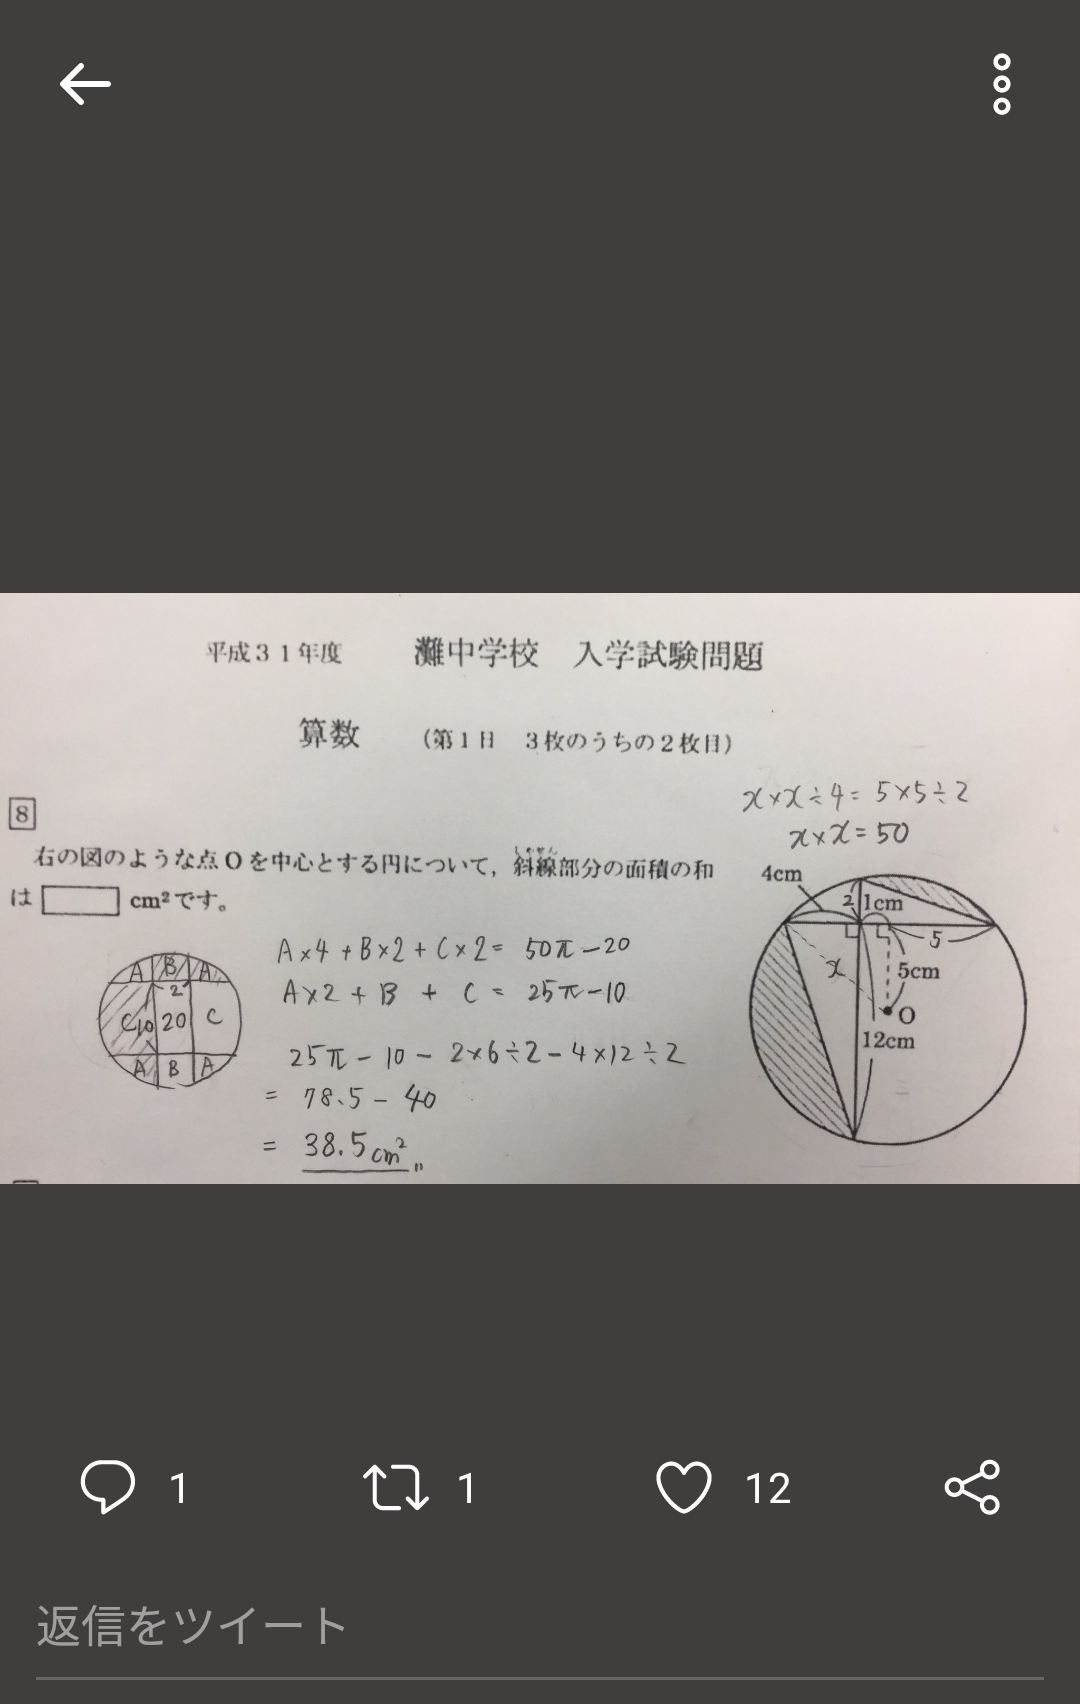 平成31年度 灘中学校 入学試験問題
算数 (第1日 3枚のうちの2枚目)
8
右の図のような点Oを中心とする円について,斜線部分の面積の和
しゃせん
は cm²です。
x×x÷4= 5×5÷2
x×x=50
4cm
2 1cm
5
x
5cm
O
12cm
A B A
2
C 10 20 C
A B A
A×4+B×2+C×2= 50π-20
A×2+B + C = 25π-10
25π-10-2×6÷2-4×12÷2
= 78.5-40
= 38.5cm²〃
1 1 12
返信をツイート